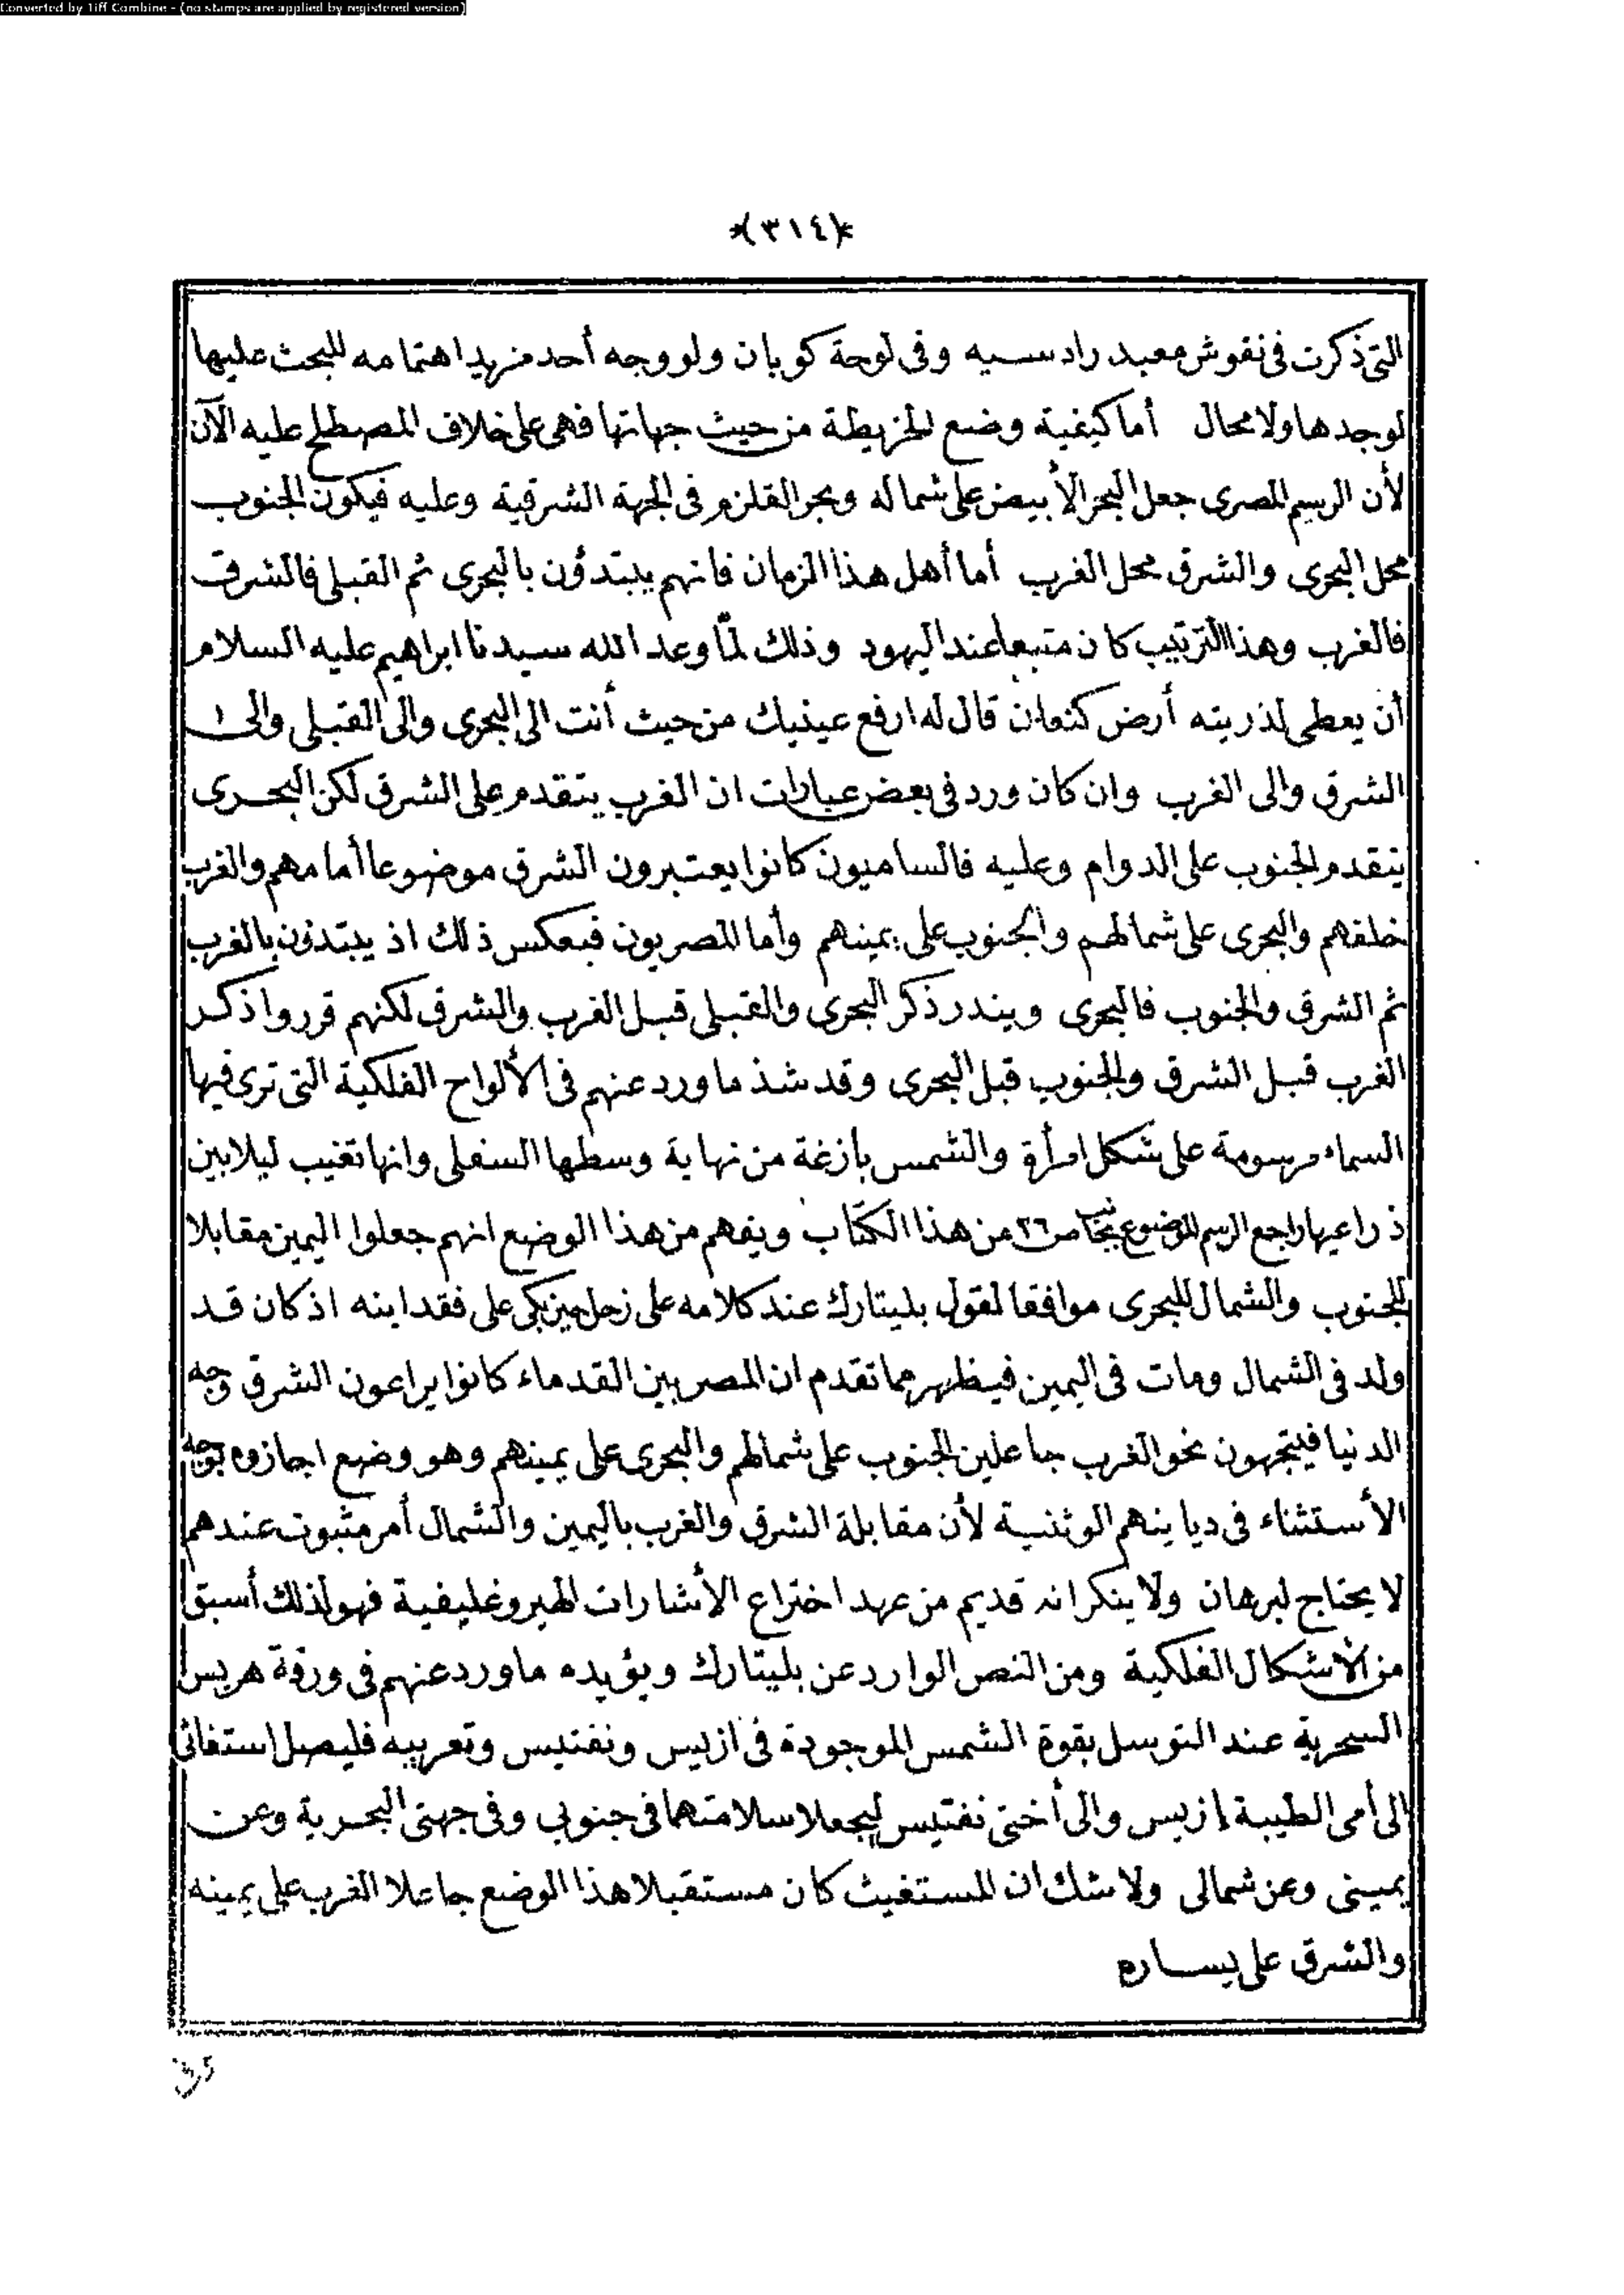 Converted by Tiff Combine - (no stamps are applied by registered version)
*(٣١٤)*
التى ذكرت فى نقوش معبد رادسيه وفى لوحة كوبان ولو وجه أحد مزيد اهتمامه للبحث عليها
لوجدها ولا محال أما كيفية وضع الخريطة من حيث جهاتها فهى على خلاف المصطلح عليه الآن
لأن الرسم المصرى جعل البحر الأبيض على شماله وبحر القلزم فى الجهة الشرقية وعليه فيكون الجنوب
محل البحرى والشرق محل الغرب أما أهل هذا الزمان فانهم يبتدؤن بالبحرى ثم القبلى فالشرق
فالغرب وهذا الترتيب كان متبعا عند اليهود وذلك لمّا وعد الله سيدنا ابراهيم عليه السلام
أن يعطى لذريته أرض كنعان قال له ارفع عينيك من حيث أنت الى البحرى والى القبلى والى
الشرق والى الغرب وان كان ورد فى بعض عبارات ان الغرب يتقدم على الشرق لكن البحرى
يتقدم الجنوب على الدوام وعليه فالساميون كانوا يعتبرون الشرق موضوعا أمامهم والغرب
خلفهم والبحرى على شمالهم والجنوب على يمينهم وأما المصريون فبعكس ذلك اذ يبتدؤن بالغرب
ثم الشرق والجنوب فالبحرى ويندر ذكر البحرى والقبلى قبل الغرب والشرق لكنهم قرروا ذكر
الغرب قبل الشرق والجنوب قبل البحرى وقد شذ ما ورد عنهم فى الألواح الفلكية التى ترى فيها
السماء مرسومة على شكل امرأة والشمس بازغة من نهاية وسطها السفلى وانها تغيب ليلا بين
ذراعيها راجع الرسم الموضوع ص ٢٦ من هذا الكتاب ويفهم من هذا الوضع انهم جعلوا اليمين مقابلا
للجنوب والشمال للبحرى موافقا لقول بليتارك عند كلامه على زحل حين بكى على فقد ابنه اذ كان قد
ولد فى الشمال ومات فى اليمين فيظهر مما تقدم ان المصريين القدماء كانوا يراعون الشرق وجه
الدنيا فيتجهون نحو الغرب جاعلين الجنوب على شمالهم والبحرى على يمينهم وهو وضع اجازوه بوجه
الأستثناء فى ديانهم الوثنية لأن مقابلة الشرق والغرب باليمين والشمال أمر مثبوت عندهم
لا يحتاج لبرهان ولا ينكر انه قديم من عهد اختراع الأشارات الهيروغليفية فهو لذلك أسبق
من الأشكال الفلكية ومن النص الوارد عن بليتارك ويؤيده ما ورد عنهم فى ورقة هريس
السحرية عند التوسل بقوة الشمس الموجودة فى ازيس ونفتيس وتعريبه فليصل استغاثى
الى أمى الطيبة ازيس والى أختى نفتيس ليجعلا سلامتهما فى جنوبى وفى جهتى البحرية وعن
يمينى وعن شمالى ولا شك ان المستغيث كان مستقبلا هذا الوضع جاعلا الغرب على يمينه
والشرق على يساره